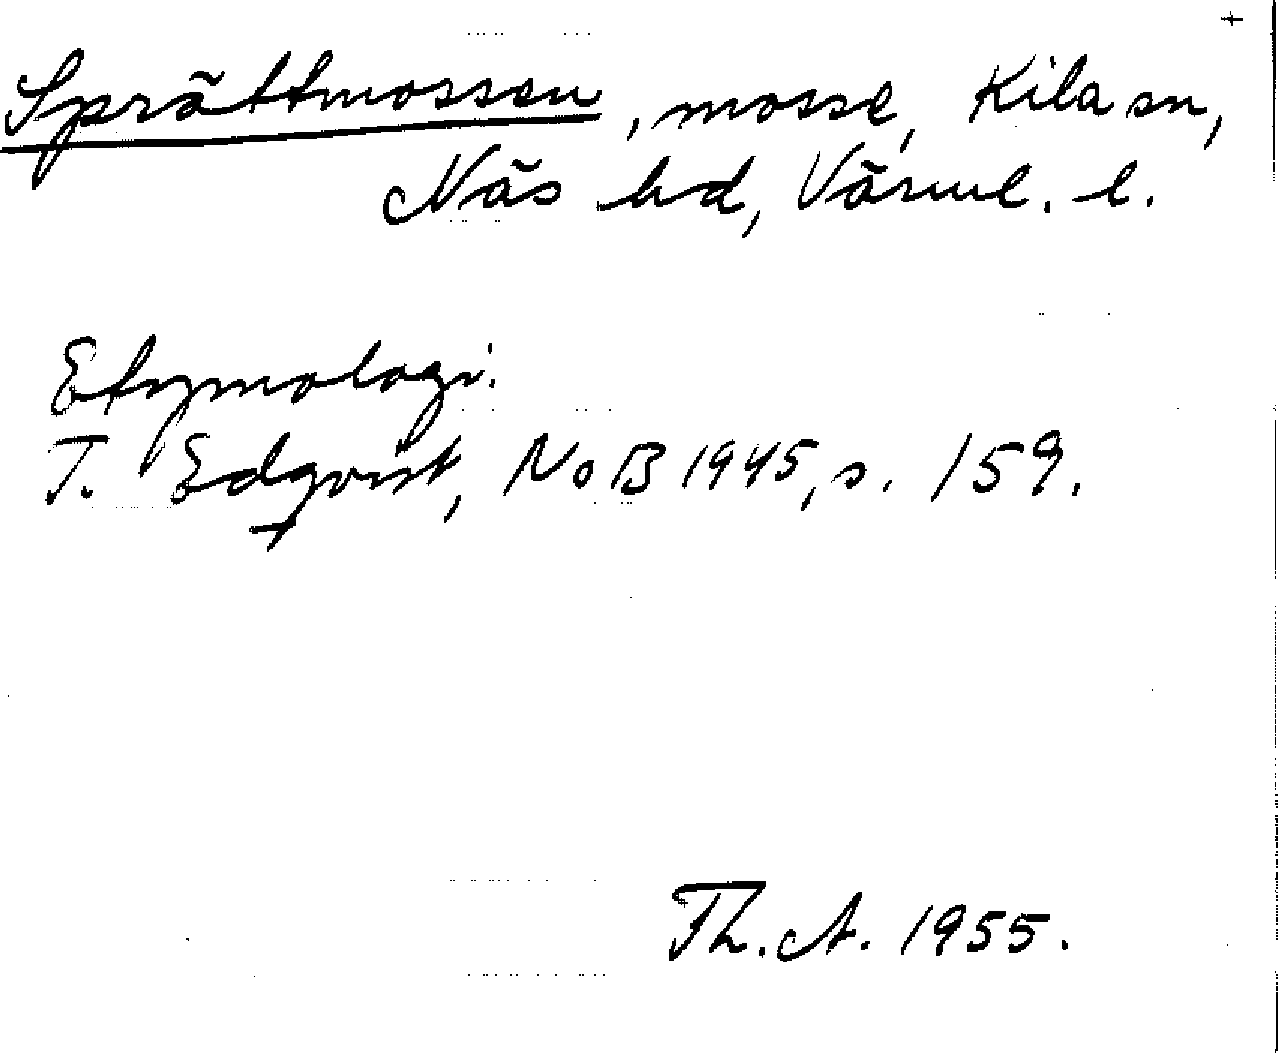 +
Sprättmossen, mosse, Kila sn,
Näs hd, Värml. l.
Etymologi.
T. Edqvist, NoB 1945, s. 159.
Th. A. 1955.